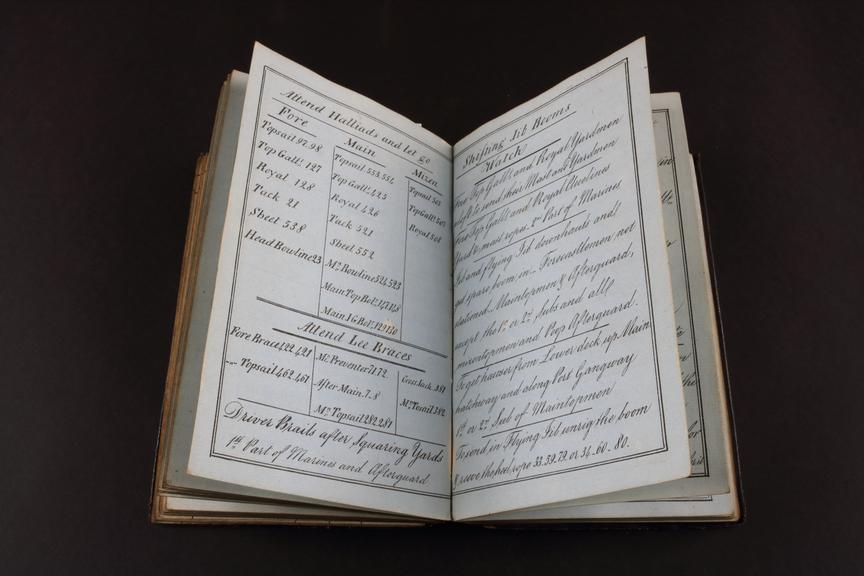 Attend Halliads and let go
Fore
Topsail 97.98
Top Gallt. 127
Royal 128
Tack 21
Sheet 538
Head Bowline 23
Main
Topsail 553.554
Top Gallt. 425
Royal 426
Tack 521
Sheet 552
Mn. Bowline 524.523
Main Top Bol.
Main
Mizen
Topsail
Top Gallt.
Royal
Attend Lee Braces
Fore Brace 422.421
Topsail 462.461
Mn. Preventer 71.72
After Main 7.8
Mn. Topsail 282.281
Cross Jack
Driver Brails after Squaring Yards
1st. Part of Marines and Afterguard
Shifting Jib Booms
Watch
Fore Top Gallt. and Royal Yardmen
aloft to send their Mast and Yardmen
Fore Top Gallt. and Royal Clewlines
Yard & mast ropes 2nd. Part of Marines
Jib and flying Jib downhauls and
get spare boom in. Forecastlemen not
stationed. Maintopmen & Afterguard,
except the 1st or 2nd. Subs and all
mizentopmen and Poop Afterguard.
To get hawser from Lower deck up Main
hatchway and along Port Gangway
1st. or 2nd. Sub of Maintopmen
To send in Flying Jib unrig the boom
& reeve the heel rope 33.59.79. or 34.60.80.